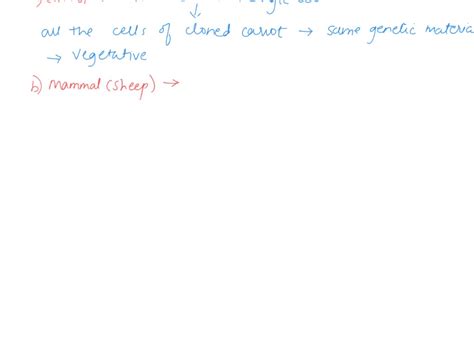 all the cells of cloned carrot → same genetic materia
→ vegetative
b) Mammal (sheep) →